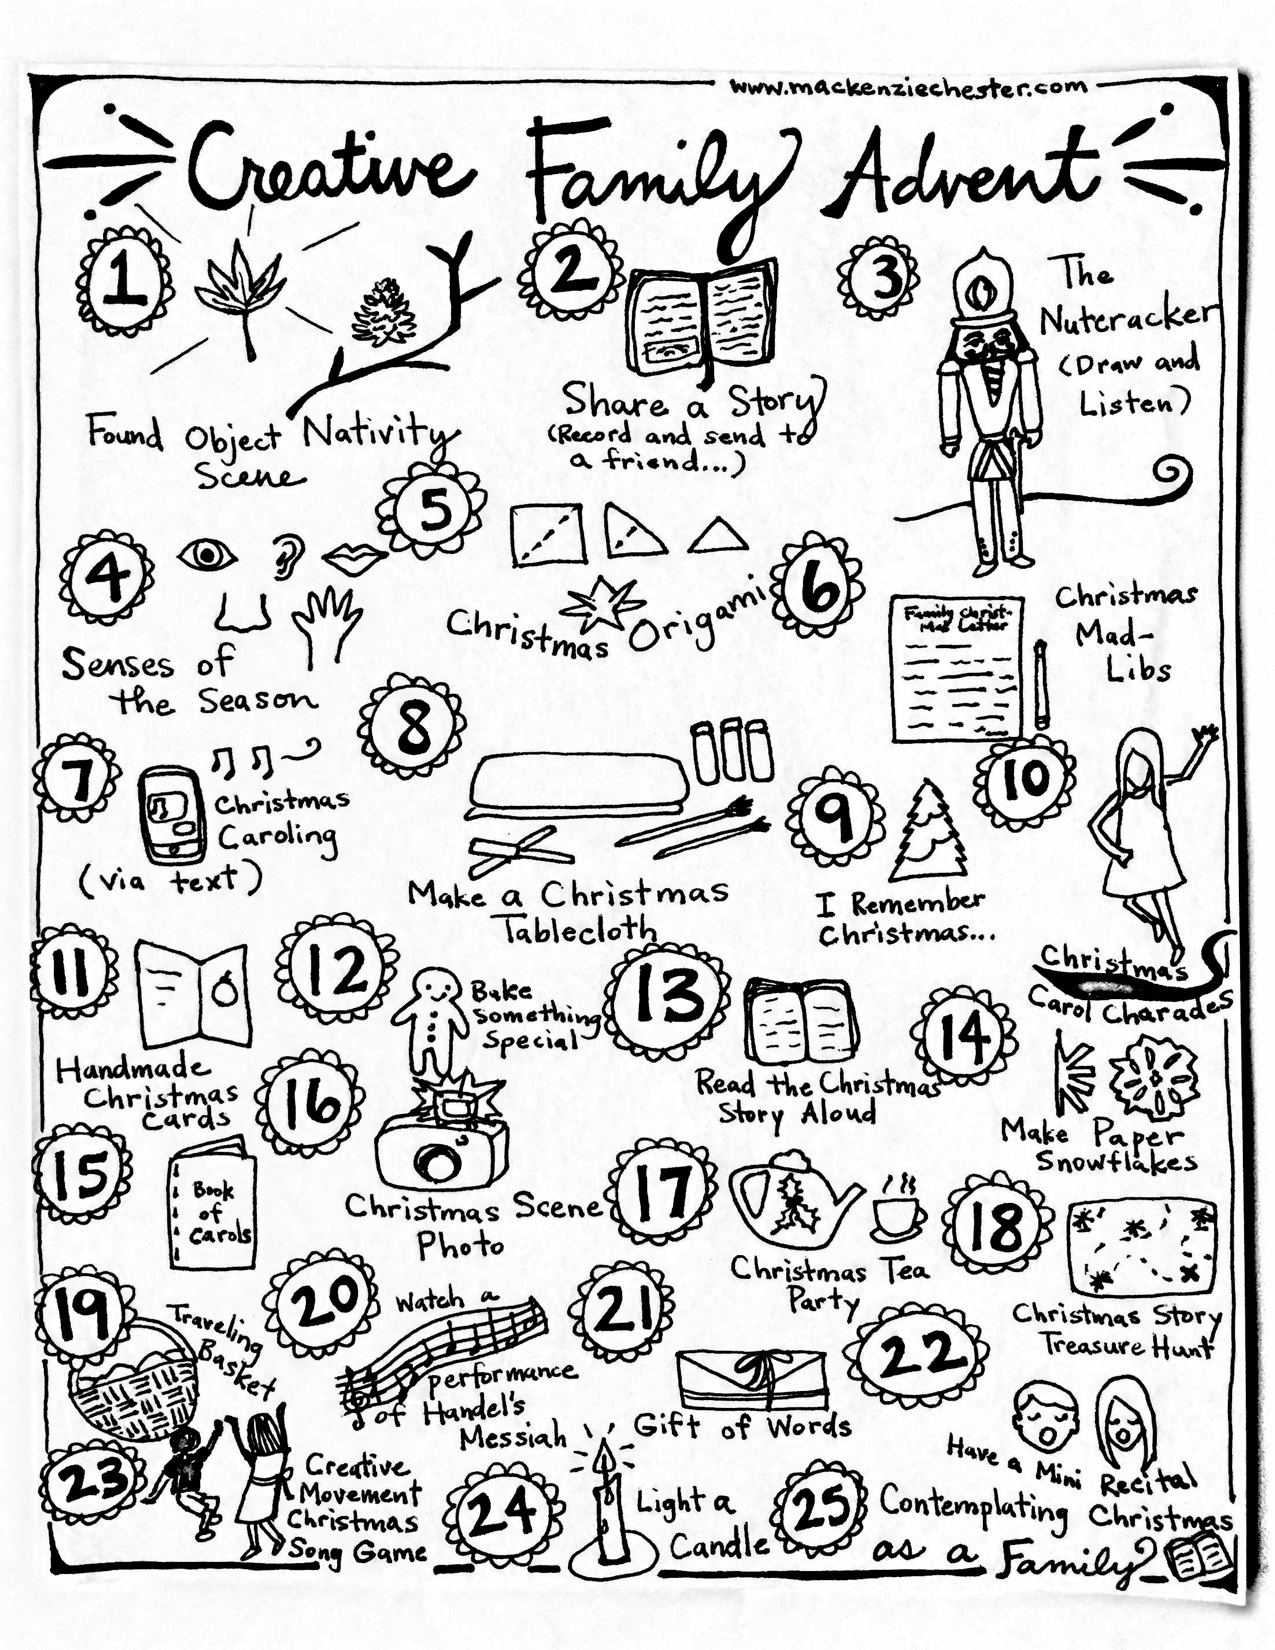 www.mackenziechester.com
Creative Family Advent
1
Found Object Nativity
Scene
2
Share a Story
(Record and send to
a friend...)
3
The
Nutcracker
(Draw and
Listen)
4
Senses of
the Season
5
Christmas Origami
6
Family Christ-
mas Letter
Christmas
Mad-
Libs
7
Christmas
Caroling
(via text)
8
Make a Christmas
Tablecloth
9
I Remember
Christmas...
10
Christmas
Carol Charades
11
Handmade
Christmas
Cards
12
Bake
Something
Special
13
Read the Christmas
Story Aloud
14
Make Paper
Snowflakes
15
Book
of
Carols
16
Christmas Scene
Photo
17
Christmas Tea
Party
18
Christmas Story
Treasure Hunt
19
Traveling
Basket
20
Watch a
performance
of Handel's
Messiah
21
Gift of Words
22
Have a Mini Recital
23
Creative
Movement
Christmas
Song Game
24
Light a
Candle
25
Contemplating Christmas
as a Family